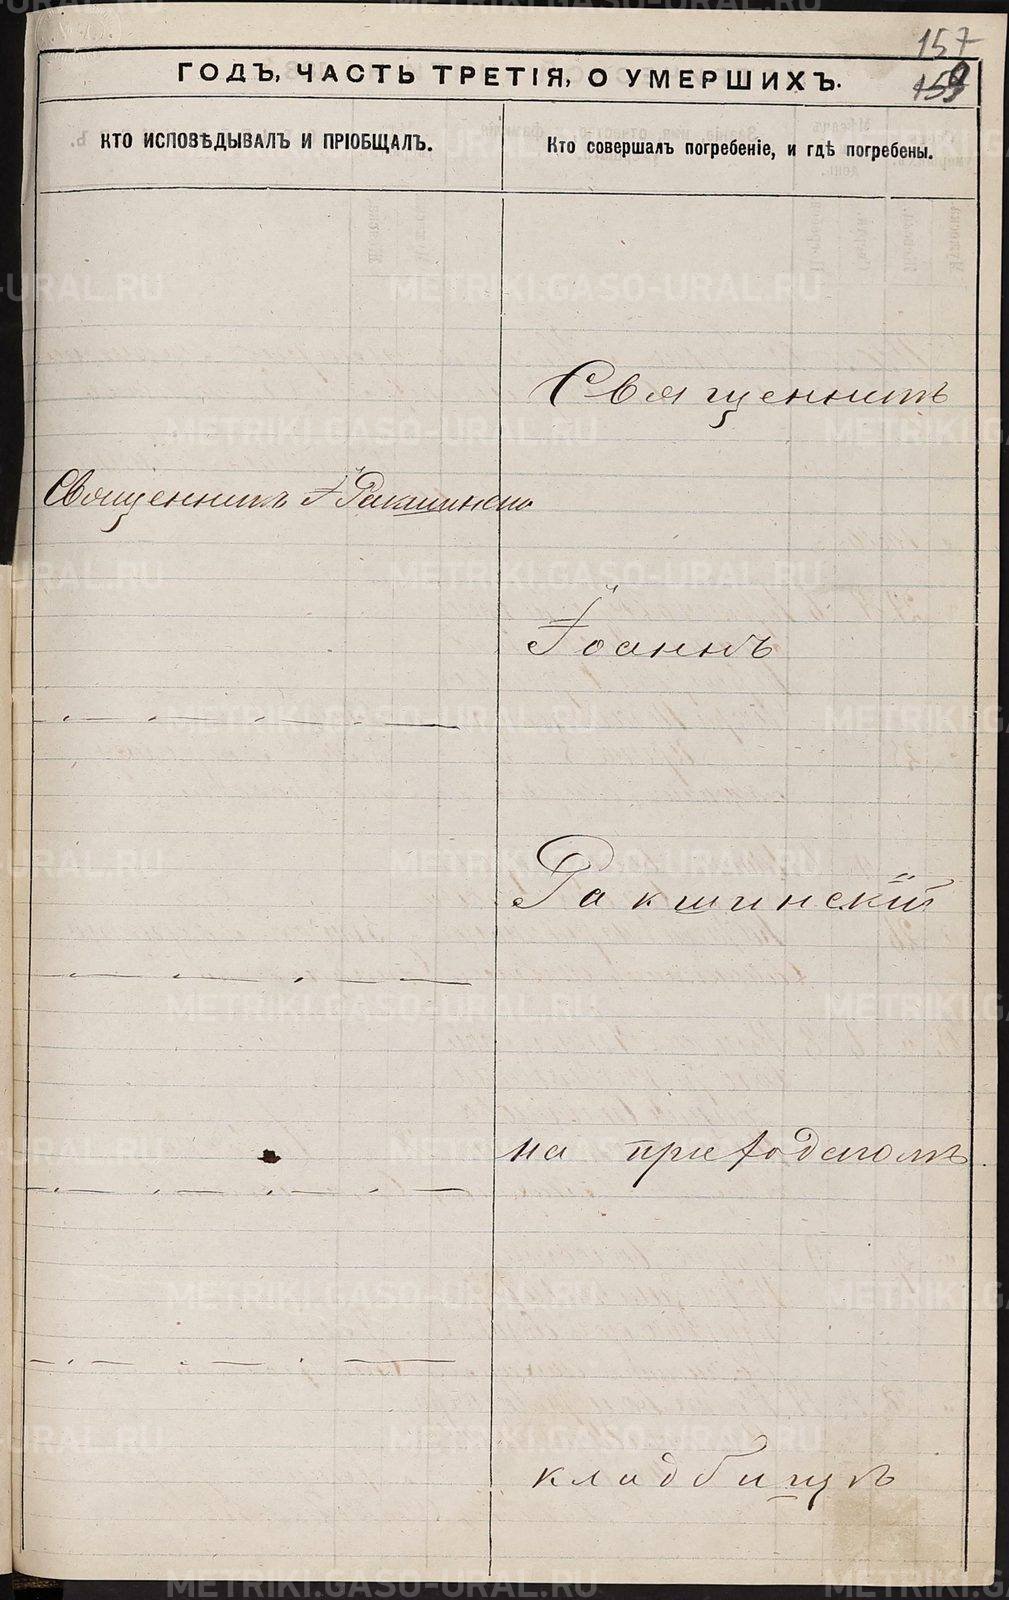 157
159
ГОДЪ, ЧАСТЬ ТРЕТІЯ, О УМЕРШИХЪ.
КТО ИСПОВѢДЫВАЛЪ И ПРІОБЩАЛЪ.
Кто совершалъ погребеніе, и гдѣ погребены.
Священникъ
Священникъ І Ракшинскій
Іоаннъ
Ракшинскій
на приходскомъ
кладбищѣ
METRIKI.GASO-URAL.RU